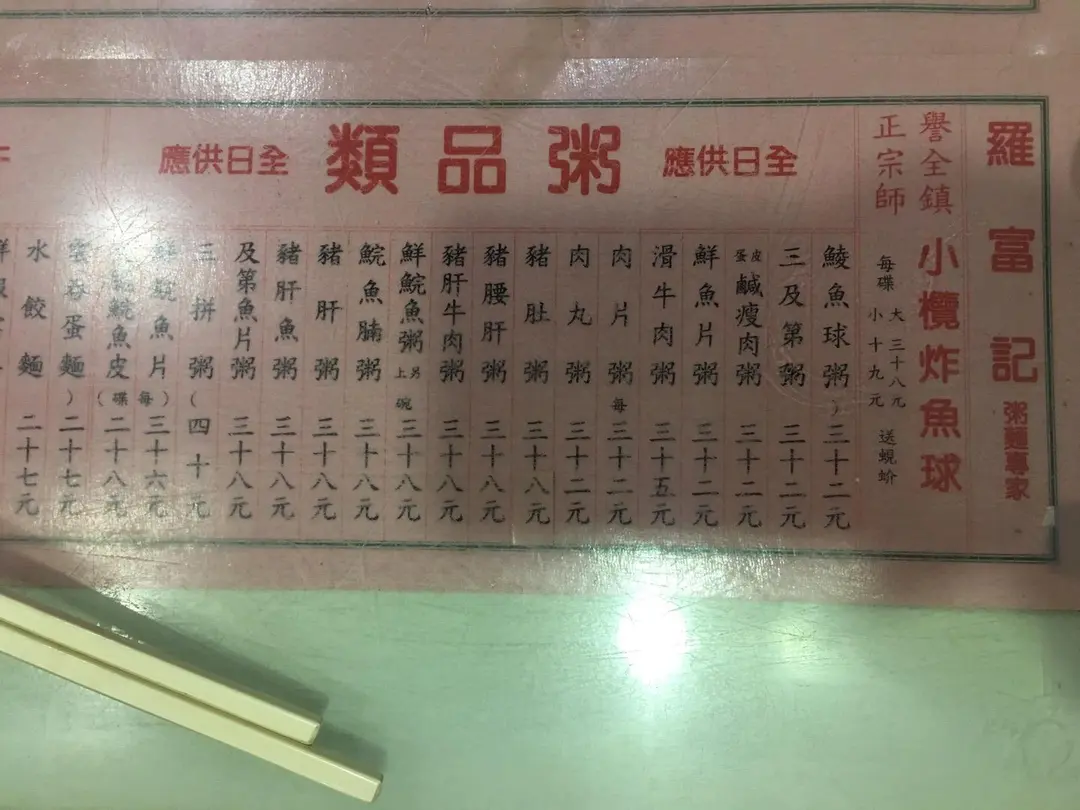 羅富記 粥麵專家
譽全鎮
正宗師
小欖炸魚球
每碟 大 三十八元
小 十九元
送蜆蚧
全日供應 粥品類 全日供應
鯪魚球粥 ) 三十二元
三及第粥 三十二元
皮蛋鹹瘦肉粥 三十二元
鮮魚片粥 三十二元
滑牛肉粥 三十五元
肉片粥 每 三十二元
肉丸粥 三十二元
豬肚粥 三十八元
豬腰肝粥 三十八元
豬肝牛肉粥 三十八元
鮮鯇魚粥 另上 碗 三十八元
鯇魚腩粥 三十八元
豬肝粥 三十八元
豬肝魚粥 三十八元
及第魚片粥 三十八元
三拼粥 ( 四十元
鮮鯇魚片 ) 每 三十六元
鯇魚皮 碟 ( 二十八元
雲吞蛋麵 ) 二十七元
水餃麵 二十七元